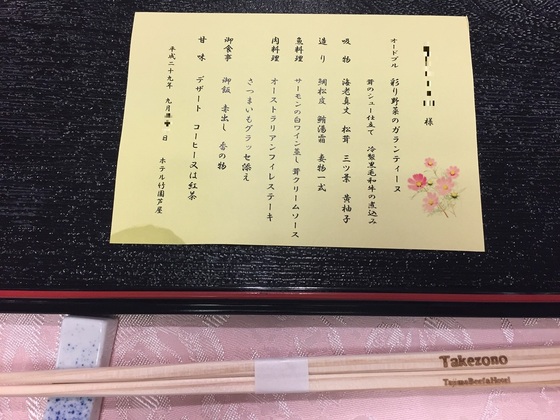 様
オードブル 彩り野菜のガランティーヌ
茸のシュー仕立て 冷製黒毛和牛の煮込み
吸物 海老真丈 松茸 三ツ葉 黄柚子
造り 鯛松皮 鮪湯霜 妻物一式
魚料理 サーモンの白ワイン蒸し 茸クリームソース
肉料理 オーストラリアンフィレステーキ
さつまいもグラッセ添え
御食事 御飯 赤出し 香の物
甘味 デザート コーヒー又は紅茶
平成二十九年 九月 日
ホテル竹園芦屋
Takezono
Tajima Beef & Hotel